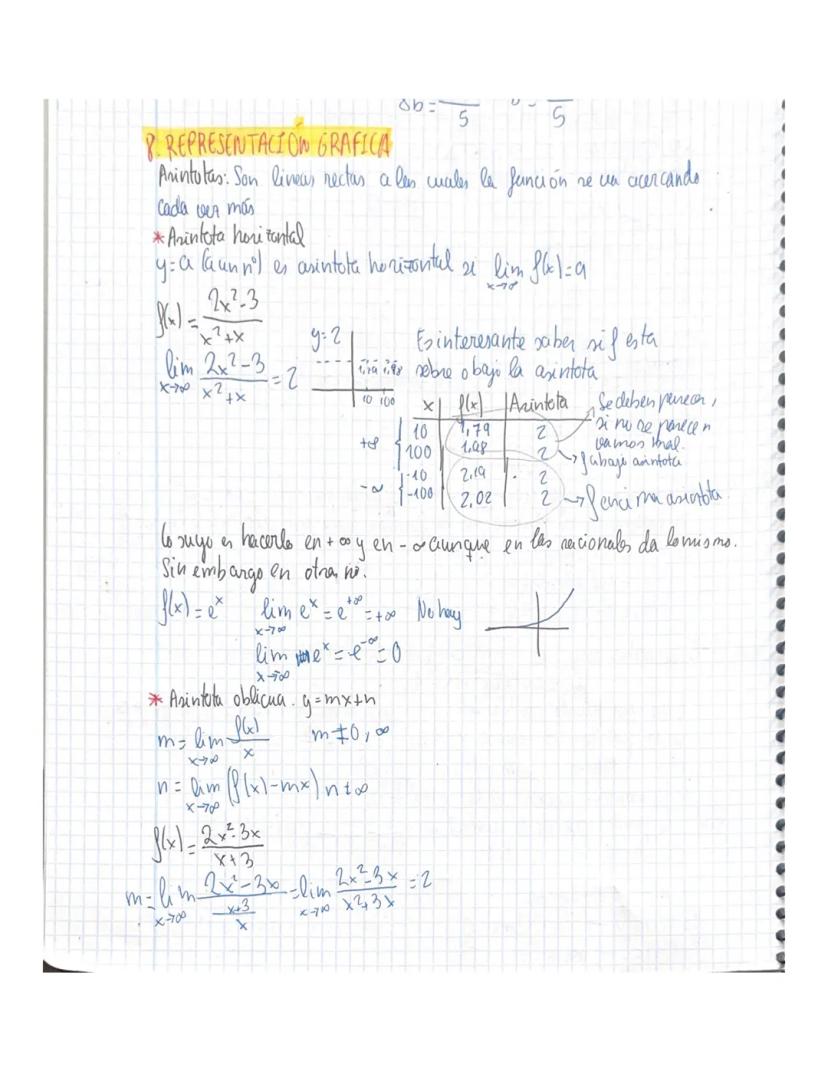 Δb = —/5
—/5
8. REPRESENTACIÓN GRAFICA
Asintotas: Son lineas rectas a las cuales la función se va acercando
cada vez más
* Asintota horizontal
y=a (a un nº) es asintota horizontal si lim x→∞ f(x)=a
f(x) = (2x²-3)/(x²+x)
lim x→∞ (2x²-3)/(x²+x) = 2
y=2
1,79 1,98
10 100
Es interesante saber si f esta
sobre o bajo la asintota
x | f(x) | Asintota
+∞ { 10 | 1,79 | 2
100 | 1,98 | 2
-∞ { -10 | 2,19 | 2
-100 | 2,02 | 2
Se deben parecer,
si no se parecen
vamos mal.
→ f abajo asintota
→ f encima asintota
Lo suyo es hacerlo en +∞ y en -∞ aunque en las racionales da lo mismo.
Sin embargo en otra, no.
f(x) = eˣ lim x→∞ eˣ = e^+∞ = +∞ No hay
lim x→-∞ eˣ = e^-∞ = 0
* Asintota oblicua. y=mx+n
m = lim x→∞ f(x)/x m≠0, ∞
n = lim x→∞ (f(x)-mx) n≠∞
f(x) = (2x²-3x)/(x+3)
m = lim x→∞ (2x²-3x)/((x+3)/x) = lim x→∞ (2x²-3x)/(x²+3x) = 2